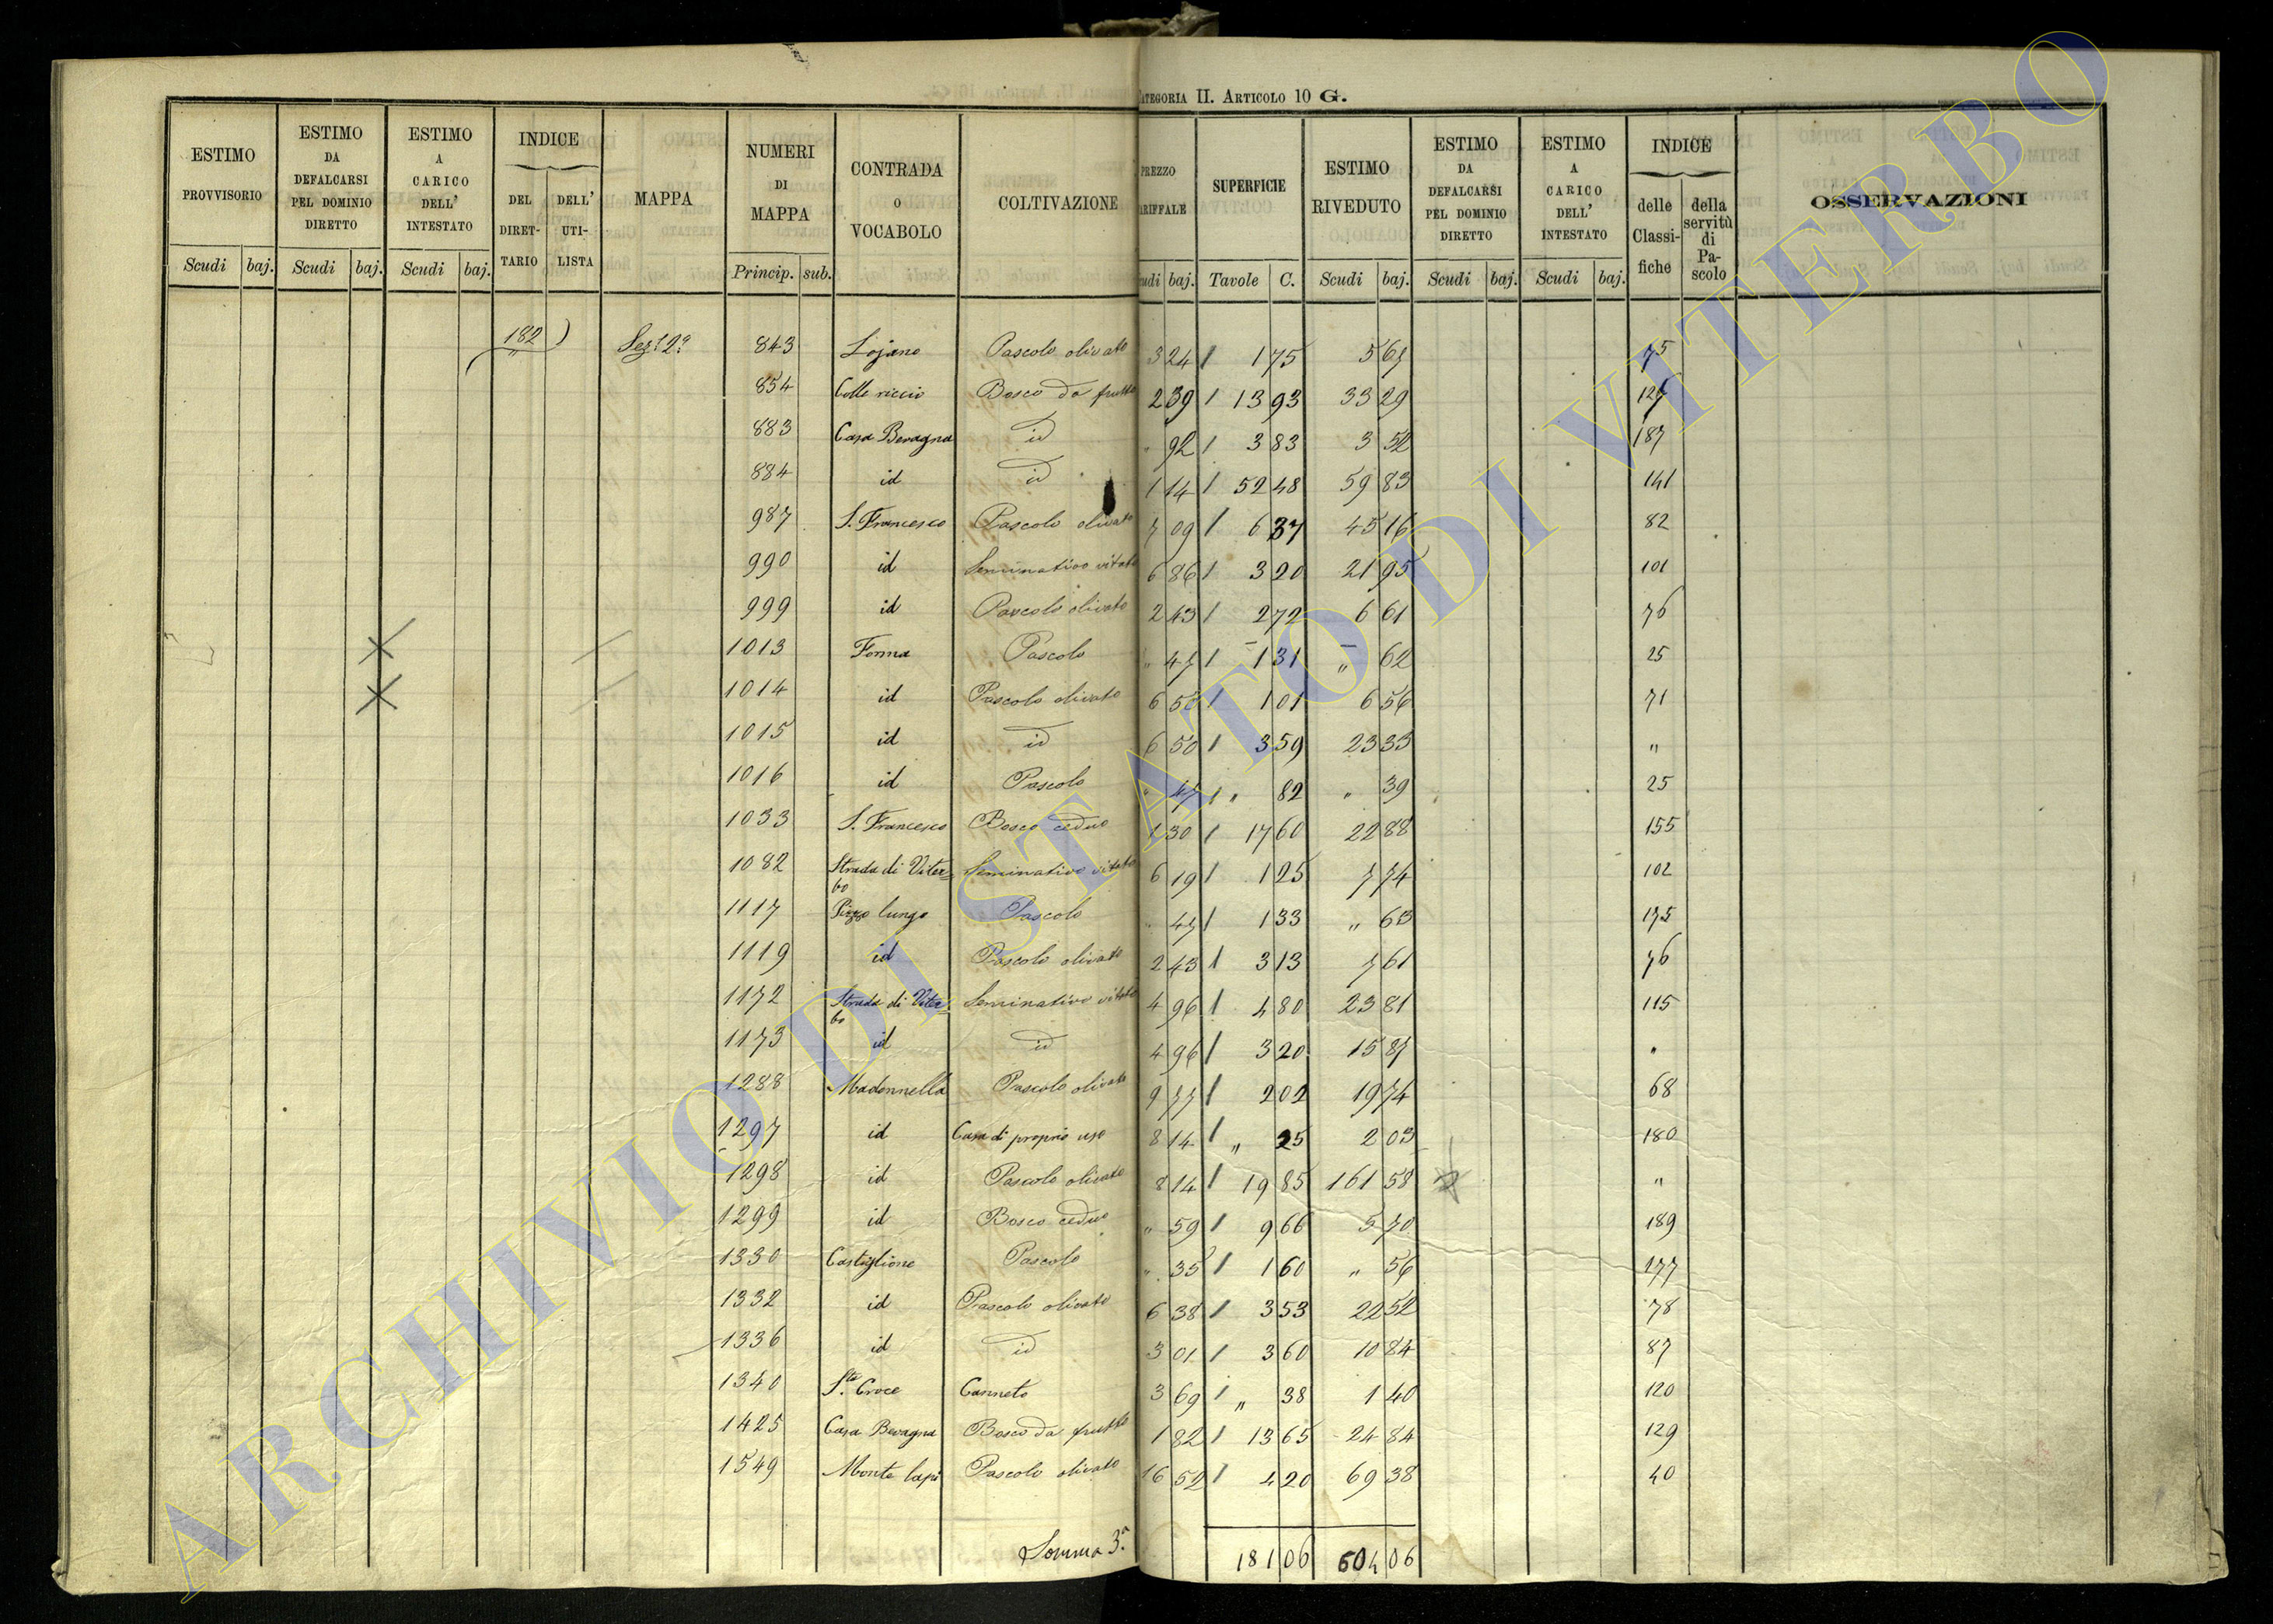 CATEGORIA II. ARTICOLO 10 G.
ESTIMO PROVVISORIO | ESTIMO DA DEFALCARSI PEL DOMINIO DIRETTO | ESTIMO A CARICO DELL' INTESTATO | INDICE DEL DIRETTARIO | DELL' UTILISTA | MAPPA | NUMERI DI MAPPA | CONTRADA O VOCABOLO | COLTIVAZIONE | PREZZO TARIFFALE | SUPERFICIE | ESTIMO RIVEDUTO | ESTIMO DA DEFALCARSI PEL DOMINIO DIRETTO | ESTIMO A CARICO DELL' INTESTATO | INDICE delle Classifiche | della servitù di Pascolo | OSSERVAZIONI
Scudi baj. | Scudi baj. | Scudi baj. | Princip. sub. | Scudi baj. | Tavole C. | Scudi baj. | Scudi baj. | Scudi baj.
182 Sez. 2ª 843 Lojano Pascolo olivato 3 24 1 75 5 67 75
854 Colle riccio Bosco da frutto 2 39 13 93 33 29 127
883 Casa Bevagna id " 92 3 83 3 52 187
884 id id 1 14 52 48 59 83 141
987 S. Francesco Pascolo olivato 7 09 6 37 45 16 82
990 id Seminativo vitato 6 86 3 20 21 95 101
999 id Pascolo olivato 2 43 2 72 6 61 76
1013 Forma Pascolo " 47 1 31 " 62 25
1014 id Pascolo olivato 6 50 1 01 6 56 71
1015 id id 6 50 3 59 23 33 "
1016 id Pascolo " 47 " 82 " 39 25
1033 S. Francesco Bosco ceduo 1 30 17 60 22 88 155
1082 Strada di Viterbo Seminativo vitato 6 19 1 25 7 74 102
1117 Pizzo lungo Pascolo " 47 1 33 " 63 175
1119 id Pascolo olivato 2 43 3 13 7 61 76
1172 Strada di Viterbo Seminativo vitato 4 96 4 80 23 81 115
1173 id id 4 96 3 20 15 87 "
1288 Madonnella Pascolo olivato 9 77 2 02 19 74 68
1297 id Casa di proprio uso 8 14 " 25 2 03 180
1298 id Pascolo olivato 8 14 19 85 161 58 "
1299 id Bosco ceduo " 59 9 66 5 70 189
1330 Castiglione Pascolo " 35 1 60 " 56 177
1332 id Pascolo olivato 6 38 3 53 22 52 78
1336 id id 3 01 3 60 10 84 87
1340 S.ta Croce Canneto 3 69 " 38 1 40 120
1425 Casa Bevagna Bosco da frutto 1 82 13 65 24 84 129
1549 Monte lapi Pascolo olivato 16 52 4 20 69 38 40
Somma 3ª 181 06 604 06
ARCHIVIO DI STATO DI VITERBO